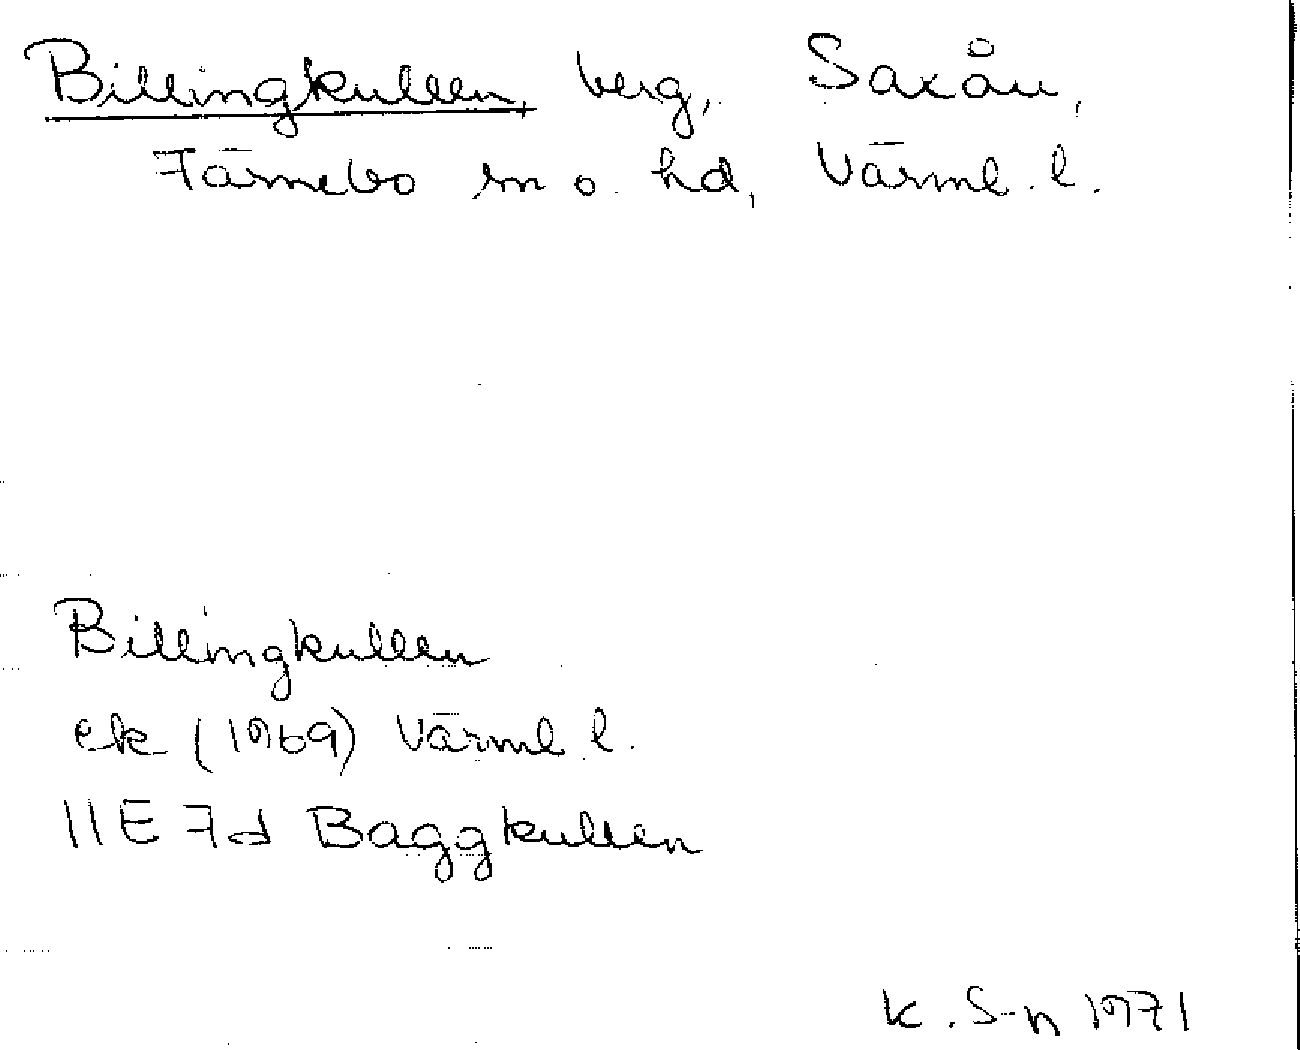 Billingkullen, berg, Saxån,
Färnebo sn o. hd, Värml. l.
Billingkullen
ek (1969) Värml l.
11E 7d Baggkullen
K. S-n 1971